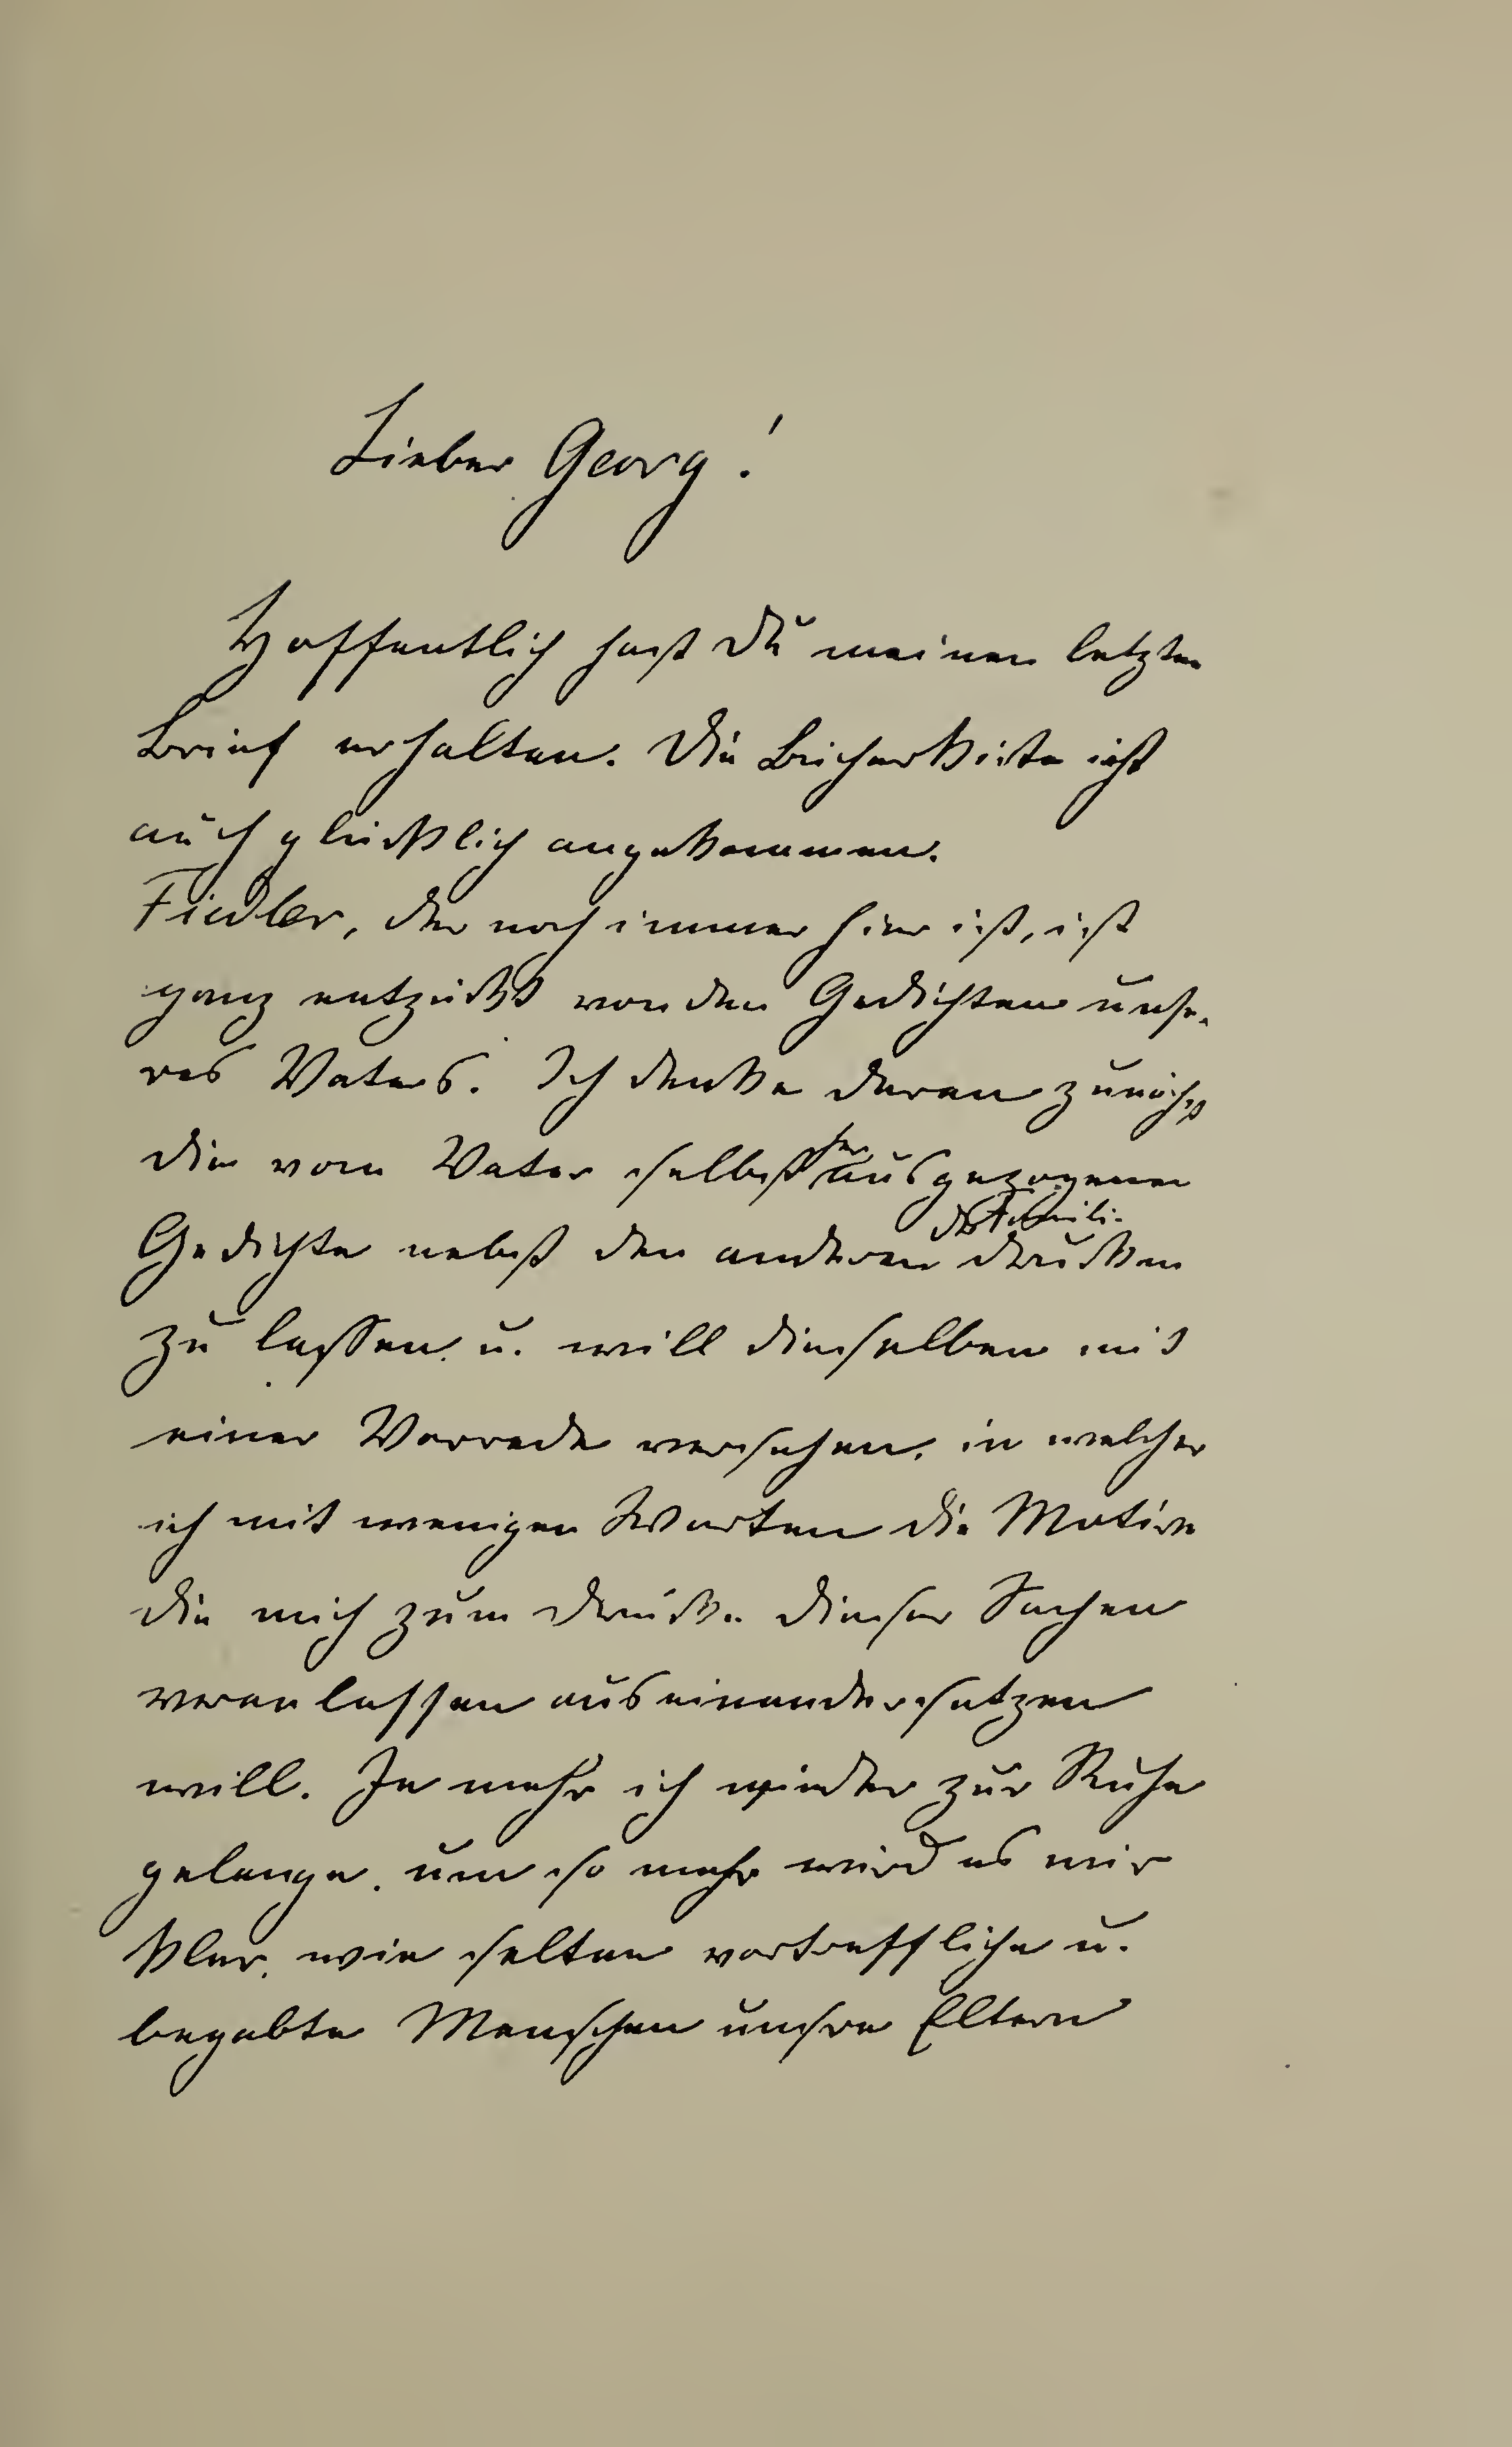 Lieber Georg!
Hoffentlich hast Du meinen letzten
Brief erhalten. Die Bücherkiste ist
auch glücklich angekommen.
Fiedler, der noch immer hier ist, ist
ganz entzückt von den Gedichten unse-
res Vaters. Ich denke daran zunächst
die vom Vater selbst ausgezogenen
Gedichte nebst den anderen drucken
zu lassen u. will dieselben mit
einer Vorrede versehen, in welcher
ich mit wenigen Worten die Motive
die mich zum Drucke dieser Sachen
veranlassen auseinandersetzen
will. Je mehr ich wieder zur Ruhe
gelange, um so mehr wird es mir
klar, wie selten vortreffliche u.
begabte Menschen unsre Eltern